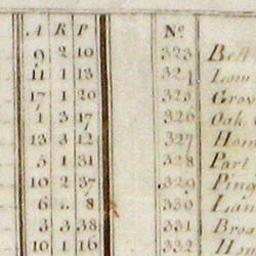 A R P No
9 2 10 323 Bell
11 1 13 324 Low
17 1 20 325 Grov
1 3 17 326 Oak
13 3 12 327 Hom
5 1 31 328 Part
10 2 37 329 Ping
6 .. 8 330 Lan
3 3 38 331 Broa
10 1 16 332 Hom